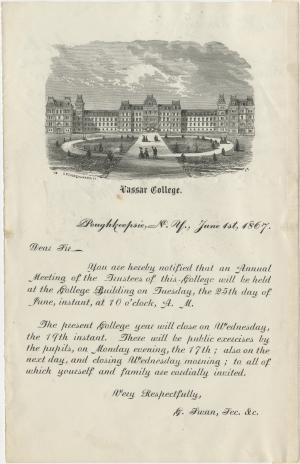 Vassar College.
Poughkeepsie, N. Y., June 1st, 1867.
Dear Sir
You are hereby notified that an Annual
Meeting of the Trustees of this College will be held
at the College Building on Tuesday, the 25th day of
June, instant, at 10 o'clock, A. M.
The present College year will close on Wednesday,
the 19th instant. There will be public exercises by
the pupils, on Monday evening, the 17th; also on the
next day, and closing Wednesday morning; to all of
which yourself and family are cordially invited.
Very Respectfully,
Swan, Sec. &c.